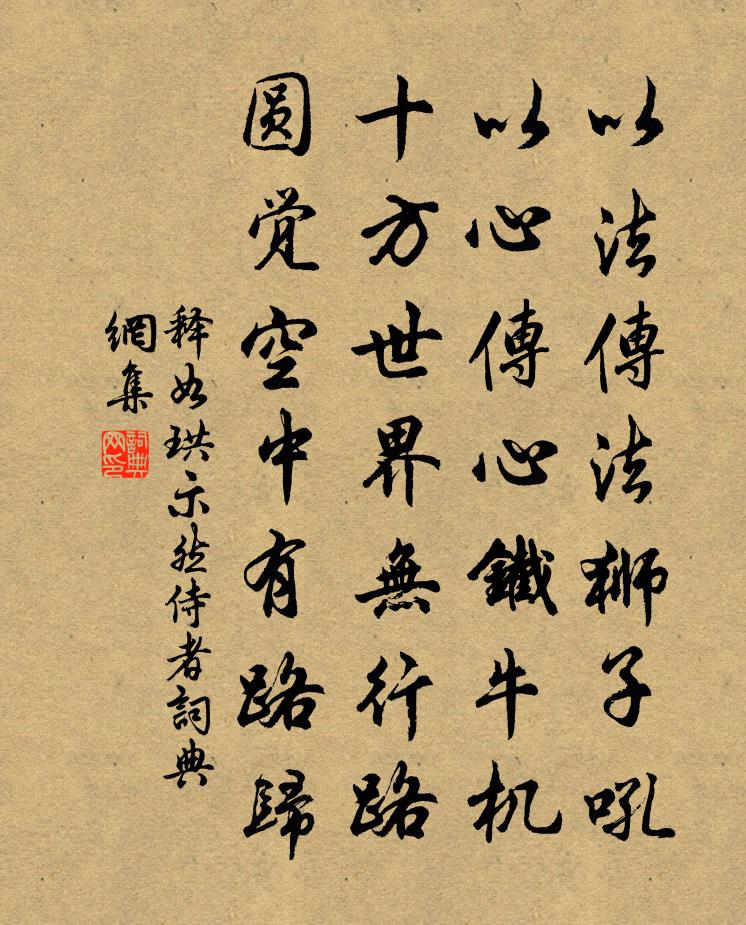 以法傳法獅子吼
以心傳心鐵牛机
十方世界無行路
圓覚空中有路歸
释如珙示然侍者詞典
網集
詞典
网印